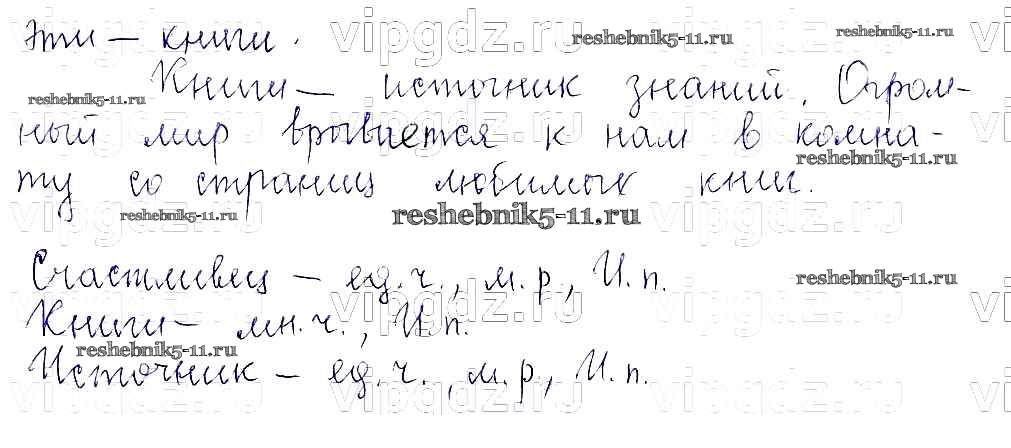 эти — книги.
Книги — источник знаний. Огром-
ный мир врывается к нам в комна-
ту со страниц любимых книг.
Счастливец — ед.ч., м.р., И.п.
Книги — мн.ч., И.п.
Источник — ед.ч., м.р., И.п.
vipgdz.ru
reshebnik5-11.ru